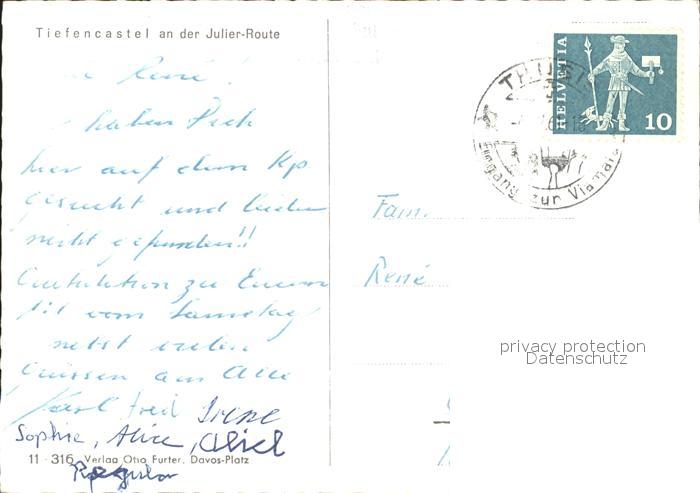 Tiefencastel an der Julier-Route
René!
haben Dich
hier auf dem Kp
gesucht und leider
nicht gefunden!!
Gratulation zu Eurem
vom Samstag
nebst vielen
Grüssen an Alle
Karl Fredi Irene
Sophie, Alice,
11 - 316 Verlag Otto Furter, Davos-Platz
THUSIS
Eingang zur Viamala
HELVETIA
10
Fam.
René
privacy protection
Datenschutz